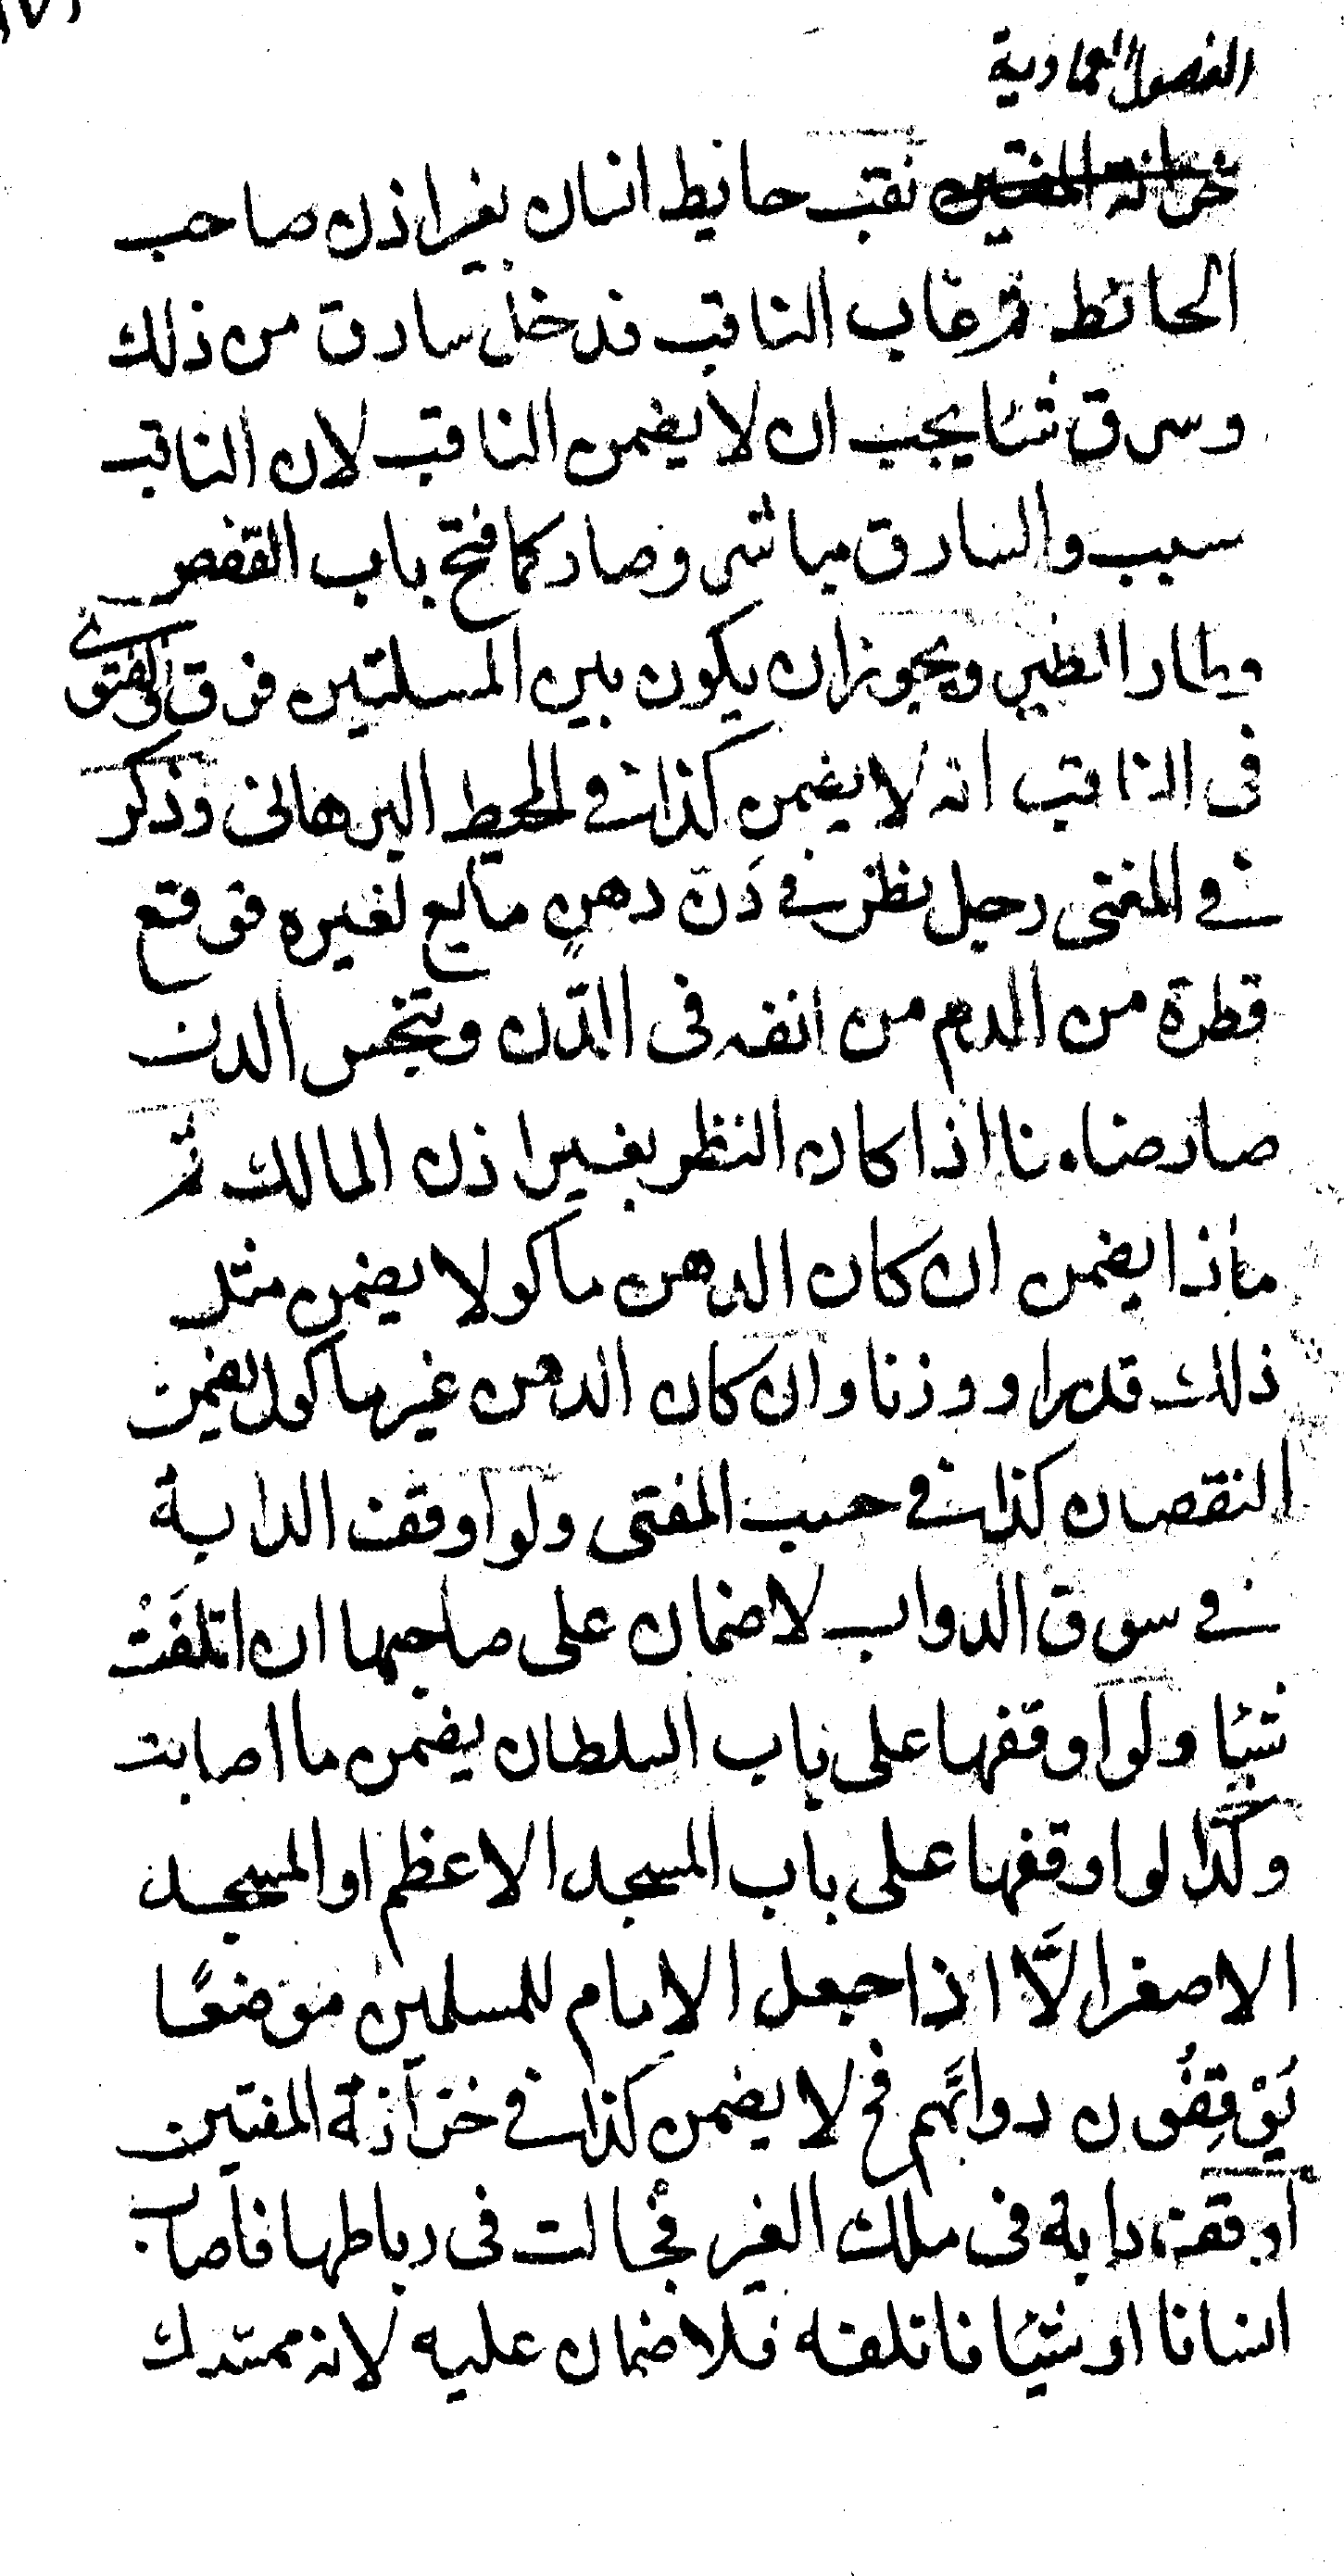 الفصول العمادية
خزانة المفتين نقب حايط انسان بغير اذن صاحب
الحائط ثم غاب الناقب فدخل سارق من ذلك
وسرق شئا يجب ان لا يضمن الناقب لان الناقب
سبب والسارق مباشر وصار كما فتح باب القفص
وطار الطير ويجوز ان يكون بين المسلتين فرق الفتوى على
فى الناقب انه لا يضمن كذا في المحيط البرهانى وذكر
في المغنى رجل نظر في دَنّ دهنٍ مايع لغيره فوقع
قطرة من الدم من انفه فى الدّن وتنجس الدن
صار ضامنا اذا كان النظر بغير اذن المالك ثم
ماذا يضمن ان كان الدهن ماكولا يضمن مثل
ذلك قدرا ووزنا وان كان الدهن غير ماكول يضمن
النقصان كذا في حسب المفتى ولو اوقف الدابة
في سوق الدواب لا ضمان على صاحبها ان اتلفَتْ
شيئا ولو اوقفها على باب السلطان يضمن ما اصابت
وكذا لو اوقفها على باب المسجد الاعظم او المسجد
الاصغر الَّا اذا جعل الامام للمسلمين موضعًا
يَوْقِفُون دوابَّهم فح لا يضمن كذا في خزانة المفتين
اوقف دابة فى ملك الغير فجالت فى رباطها فاصاب
انسانا او شيئا فاتلفته فلا ضمان عليه لانه ممسك